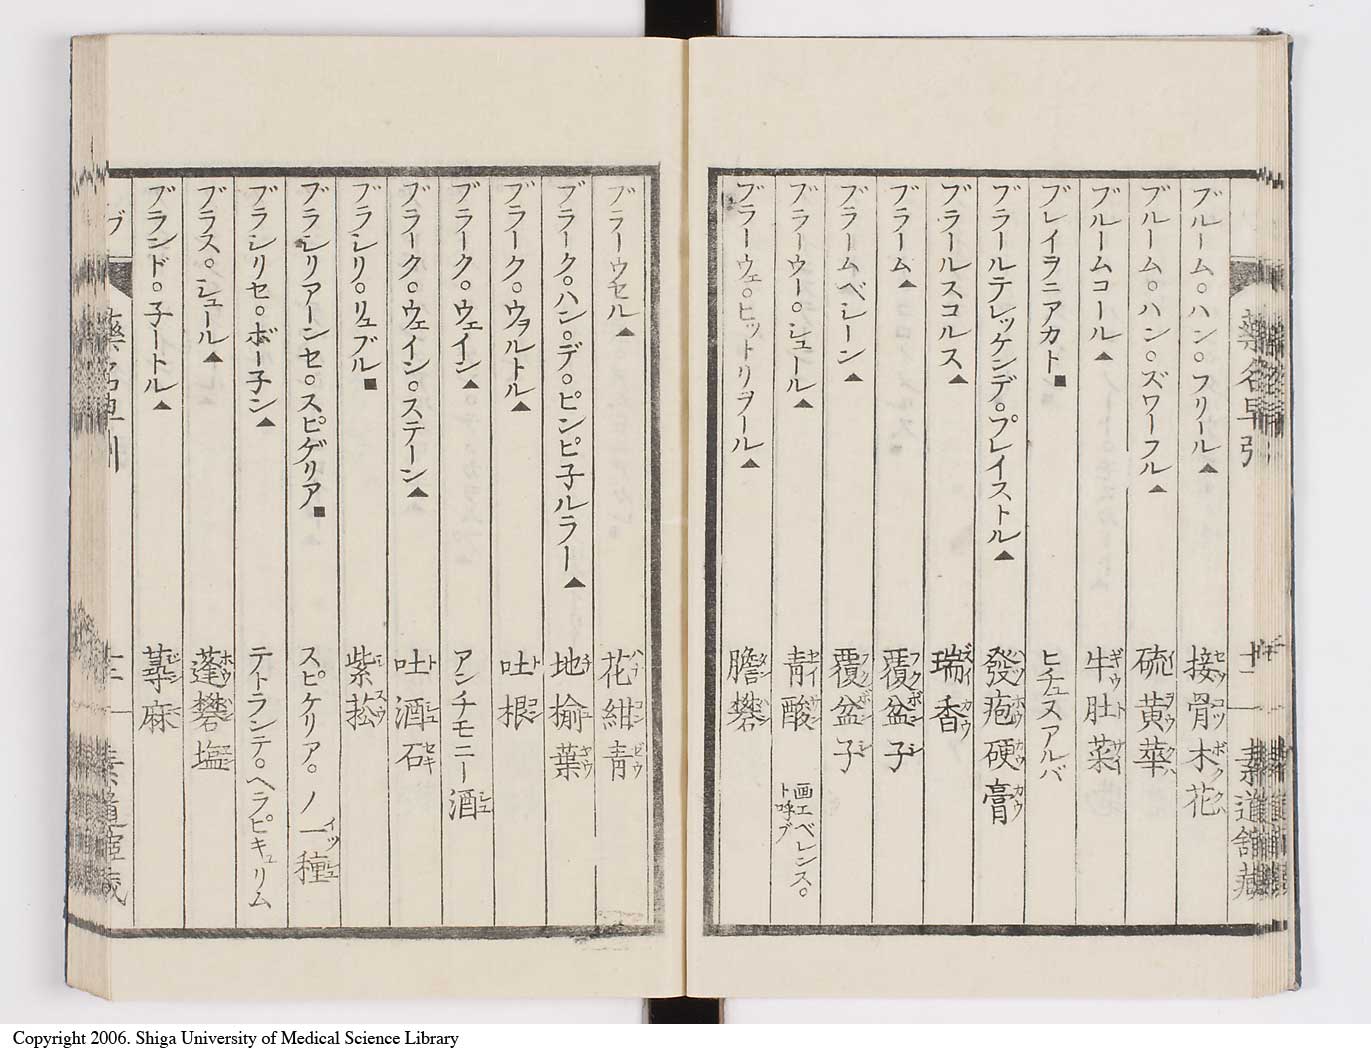 ブルーム。ハン。フリール▲ 接骨木花
ブルーム。ハン。ズワーフル▲ 硫黄華
ブルームコール▲ 牛肚菜
ブレイヲニアカト■ ヒチュヌアルバ
ブラールテレッケンデ。プレイストル▲ 發疱硬膏
ブラールスコルス▲ 瑞香
ブラーム▲ 覆盆子
ブラームベシーン▲ 覆盆子
ブラーウー。シュール▲ 靑酸 画工ベレンス。ト呼ブ
ブラーウェ。ヒットリヲール▲ 膽礬
ブラーウセル▲ 花紺青
ブラーク。ハン。デ。ピンピ子ルラー▲ 地榆葉
ブラーク。ウヲルトル▲ 吐根
ブラーク。ウェイン▲ アンチモニー酒
ブラーク。ウェイン。ステーン▲ 吐酒石
ブラシリ。リュブル■ 紫菘
ブラシリアーンセ。スピゲリア■ スピケリア。ノ一種
ブラシリセ。ボー子ン▲ テトランテ。ヘラピキュリム
ブラス。シュール▲ 蓬礬塩
ブランド。子ートル▲ 蕁麻
藥名早引 十二 素道館藏
ブ
Copyright 2006. Shiga University of Medical Science Library